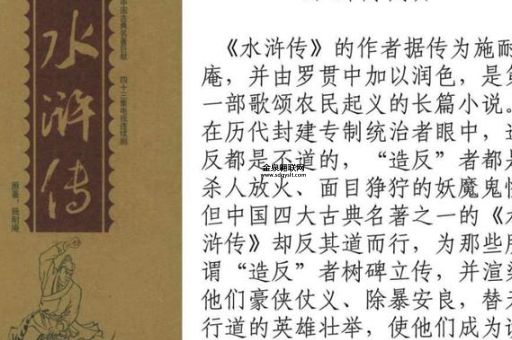 中国古典名著百部
四十三集电视连续剧
水浒传
原著：施耐庵
《水浒传》的作者据传为施耐
庵，并由罗贯中加以润色，是第
一部歌颂农民起义的长篇小说。
在历代封建专制统治者眼中，造
反都是不道的，“造反”者都是
杀人放火、面目狰狞的妖魔鬼怪
但中国四大古典名著之一的《水
浒传》却反其道而行，为那些所
谓“造反”者树碑立传，并渲染
他们豪侠仗义、除暴安良，替天
行道的英雄壮举，使他们成为
金泉朝联网
www.sdgynlt.com